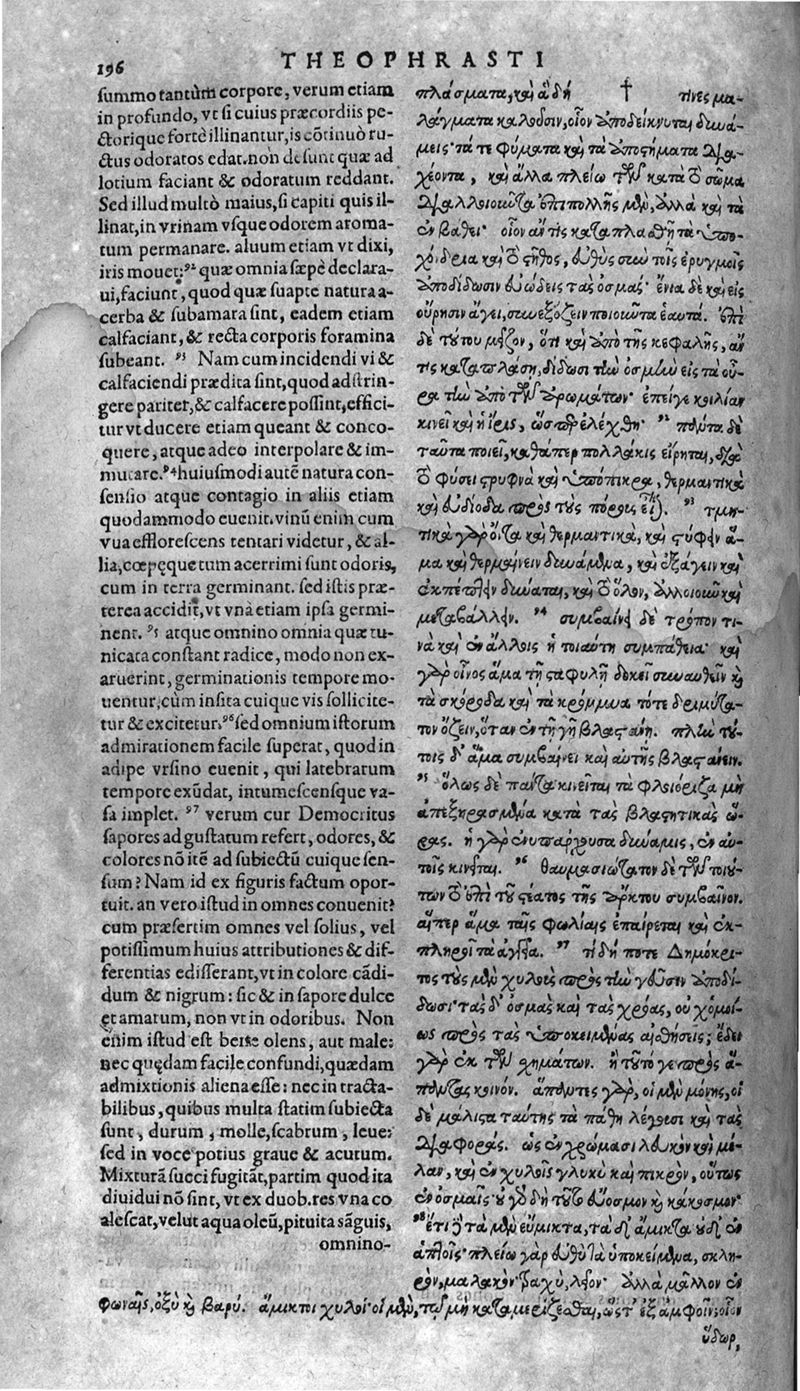 196
THEOPHRASTI
summo tantùm corpore, verum etiam
in profundo, vt si cuius præcordiis pe-
ctorique fortè illinantur, is cōtinuò ru-
ctus odoratos edat. non desunt quæ ad
lotium faciant & odoratum reddant.
Sed illud multò maius, si capiti quis il-
linat, in vrinam vsque odorem aroma-
tum permanare. aluum etiam vt dixi,
iris mouet: 92 quæ omnia sæpè declara-
ui, faciunt, quod quæ suapte natura a-
cerba & subamara sint, eadem etiam
calfaciant, & recta corporis foramina
subeant. 93 Nam cum incidendi vi &
calfaciendi prædita sint, quod adstrin-
gere pariter, & calfacere possint, effici-
tur vt ducere etiam queant & conco-
quere, atque adeo interpolare & im-
mutare. 94 huiusmodi autē natura con-
sensio atque contagio in aliis etiam
quodammodo euenit. vinū enim cum
vua efflorescens tentari videtur, & al-
lia, cœpęque tum acerrimi sunt odoris,
cum in terra germinant. sed istis præ-
terea accidit, vt vnà etiam ipsa germi-
nent. 95 atque omnino omnia quæ tu-
nicata constant radice, modo non ex-
aruerint, germinationis tempore mo-
uentur, cùm insita cuique vis sollicite-
tur & excitetur. 96 sed omnium istorum
admirationem facile superat, quod in
adipe vrsino euenit, qui latebrarum
tempore exūdat, intumescensque va-
sa implet. 97 verum cur Democritus
sapores ad gustatum refert, odores, &
colores nō itē ad subiectū cuique sen-
sum? Nam id ex figuris factum opor-
tuit. an vero istud in omnes conuenit?
cum præsertim omnes vel solius, vel
potissimum huius attributiones & dif-
ferentias edisserant, vt in colore cādi-
dum & nigrum: sic & in sapore dulce
et amarum, non vt in odoribus. Non
enim istud est bene olens, aut male:
nec quędam facile confundi, quædam
admixtionis aliena esse: nec in tracta-
bilibus, quibus multa statim subiecta
sunt, durum, molle, scabrum, leue:
sed in voce potius graue & acutum.
Mixturā succi fugitāt, partim quod ita
diuidui nō sint, vt ex duob. res vna co
alescat, velut aqua oleū, pituita sāguis,
omnino-
πλάσματα, καὶ ἃ δή † τινες μα-
λάγματα καλοῦσιν, οἷον ἀποδείκνυται δυνά-
μεις· τά τε φύματα καὶ τὰ ἀποστήματα δια-
χέοντα, καὶ ἄλλα πλείω τῶν κατὰ τὸ σῶμα
διαλλοιοῦντα ἐπιπολῆς μὲν, ἀλλὰ καὶ τὰ
ἐν βάθει· οἷον ἄν τις καταπλασθῇ τὰ ὑπο-
χόνδρια καὶ τὸ στῆθος, εὐθὺς σὺν τοῖς ἐρυγμοῖς
ἀποδίδωσιν εὐώδεις τὰς ὀσμάς· ἔνια δὲ καὶ εἰς
οὔρησιν ἄγει, συνεξόζειν ποιοῦντα ἑαυτά. ἐπὶ
δὲ τούτου μεῖζον, ὅτι καὶ ἀπὸ τῆς κεφαλῆς, ἄν
τις καταπλάσῃ, δίδωσι τὴν ὀσμὴν εἰς τὰ οὖ-
ρα τὴν ἀπὸ τῶν ἀρωμάτων· ἐπείγε κοιλίαν
κινεῖ καὶ ἡ ἶρις, ὥσπερ ἐλέχθη· 92 πάντα δὲ
ταῦτα ποιεῖ, καθάπερ πολλάκις εἴρηται, διὰ
τὸ φύσει στρυφνὰ καὶ ὑπόπικρα, θερμαντικὰ
καὶ εὐδίοδα πρὸς τοὺς πόρους εἶναι. 93 τμη-
τικὰ γὰρ ὄντα καὶ θερμαντικὰ, καὶ στύφειν ἅ-
μα καὶ θερμαίνειν δυνάμενα, καὶ ἐξάγειν καὶ
ἐκπέττειν δύναται, καὶ τὸ ὅλον, ἀλλοιοῦν καὶ
μεταβάλλειν. 94 συμβαίνει δὲ τρόπον τι-
νὰ καὶ ἐν ἄλλοις ἡ τοιαύτη συμπάθεια· καὶ
γὰρ οἶνος ἅμα τῇ σταφυλῇ δοκεῖ συνανθεῖν καὶ
τὰ σκόροδα καὶ τὰ κρόμμυα τότε δριμύτα-
τον ὄζειν, ὅταν ἐν τῇ γῇ βλαστάνῃ. πλὴν τού-
τοις δ' ἅμα συμβαίνει καὶ αὐτῆς βλαστάνειν.
95 ὅλως δὲ πάντα κινεῖται τὰ φλοιόριζα μὴ
ἀπεξηρασμένα κατὰ τὰς βλαστητικὰς ὥ-
ρας. ἡ γὰρ ἐνυπάρχουσα δύναμις, ἐν αὐ-
τοῖς κινεῖται. 96 θαυμασιώτατον δὲ τῶν τοιού-
των τὸ ἐπὶ τοῦ στέατος τῆς ἄρκτου συμβαῖνον.
αἴπερ ἅμα ταῖς φωλίαις ἐπαίρεται καὶ ἐκ-
πληροῖ τὰ ἀγγεῖα. 97 τί δή ποτε Δημόκρι-
τος τοὺς μὲν χυλοὺς πρὸς τὴν γεῦσιν ἀποδί-
δωσι· τὰς δ' ὀσμὰς καὶ τὰς χρόας, οὐχ ὁμοί-
ως πρὸς τὰς ὑποκειμένας αἰσθήσεις; ἔδει
γὰρ ἐκ τῶν σχημάτων. ἢ τοῦτό γε πρὸς ἅ-
παντας κοινόν. ἅπαντες γὰρ, οἱ μὲν μόνης, οἱ
δὲ μάλιστα ταύτης τὰ πάθη λέγουσι καὶ τὰς
διαφοράς. ὡς ἐν χρώμασι λευκὸν καὶ μέ-
λαν, καὶ ἐν χυλοῖς γλυκὺ καὶ πικρὸν, οὕτως
ἐν ὀσμαῖς· οὐ γὰρ δὴ τοῦτο εὔοσμον καὶ κάκοσμον·
98 ἔτι δὲ τὰ μὲν εὔμικτα, τὰ δὲ ἄμικτα οὐδὲ ἐν
ἁπτοῖς· πλείω γὰρ εὐθὺ τὰ ὑποκείμενα, σκλη-
ρὸν, μαλακὸν· τραχὺ, λεῖον· ἀλλὰ μᾶλλον ἐν
φωναῖς, ὀξὺ καὶ βαρύ. ἄμικτοι χυλοί· οἱ μὲν, τῷ μὴ καταμερίζεσθαι, ὥστ' ἐξ ἀμφοῖν· οἷον
ὕδωρ,